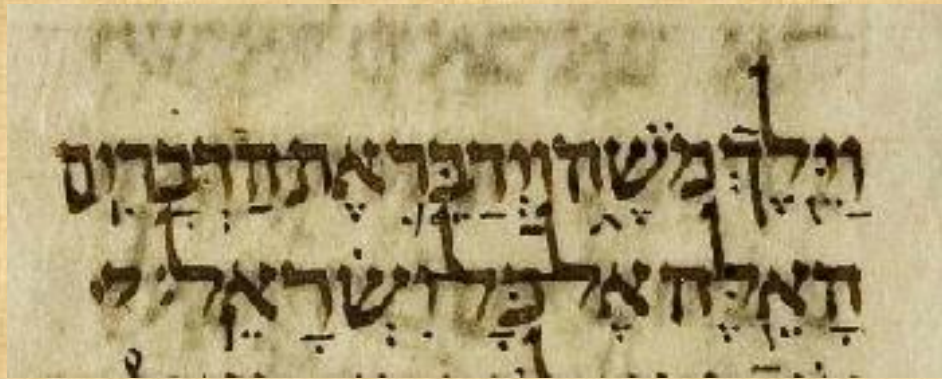 וַיֵּלֶךְ מֹשֶׁה וַיְדַבֵּר אֶת הַדְּבָרִים
הָאֵלֶּה אֶל כָּל יִשְׂרָאֵל׃